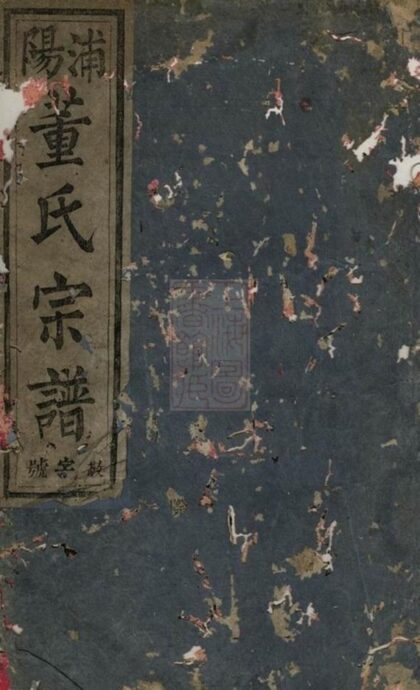 浦陽
董氏宗譜
字號